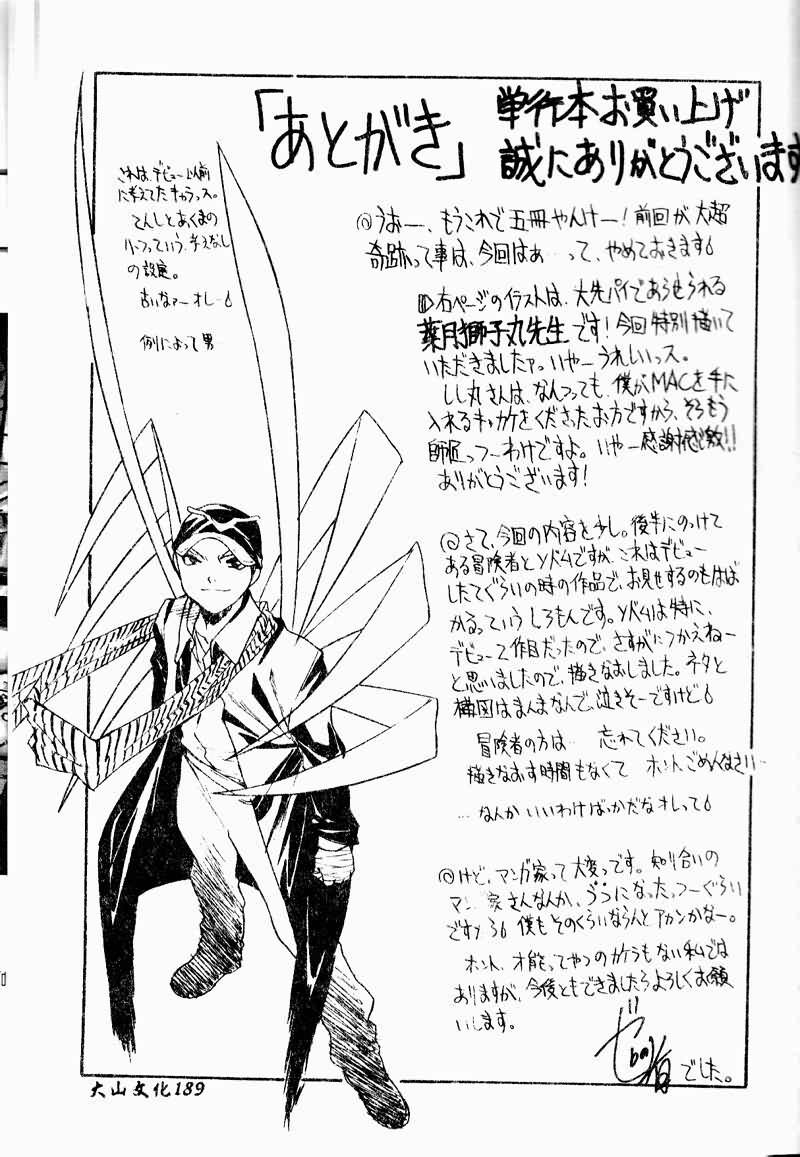 「あとがき」
単行本お買い上げ
誠にありがとうございます
これは、デビュー以前
に考えてたキャラっス。
てんしとあくまの
ハーフっていう、考えなし
の設定。
古いなァーオレ…
例によって男
◎うおー、もうこれで五冊やんけー!前回が大超
奇跡って事は、今回はぁ…って、やめておきます
右ページのイラストは、大先パイであらせられる
薬月獅子丸先生です!今回特別描いて
いただきましたァ。いやーうれしいっス。
しし丸さんは、なんつっても、僕がMACを手に
入れるキッカケをくださったお方ですから、そらもう
師匠っつーわけですよ。いやー感謝感激!!
ありがとうございます!
◎さて、今回の内容を少し。後半にのっけて
ある冒険者とですが、これはデビュー
したてぐらいの時の作品で、お見せするのもはば
かるっていうしろもんです。は特に、
デビュー2作目だったので、さすがにつかえねー
と思いましたので、描きなおしました。ネタと
構図はまんまなんで、泣きそーですけど
冒険者の方は… 忘れてください。
描きなおす時間もなくて ホントごめんなさい…
…なんかいいわけばっかだなオレって
◎けど、マンガ家って大変っです。知り合いの
マンガ家さんなんか、になったっつーぐらい
ですから 僕もそのくらいならんとアカンかなー。
ホント、才能ってやつのカケラもない私では
ありますが、今後ともできましたらよろしくお願
いします。
でした。
大山文化189